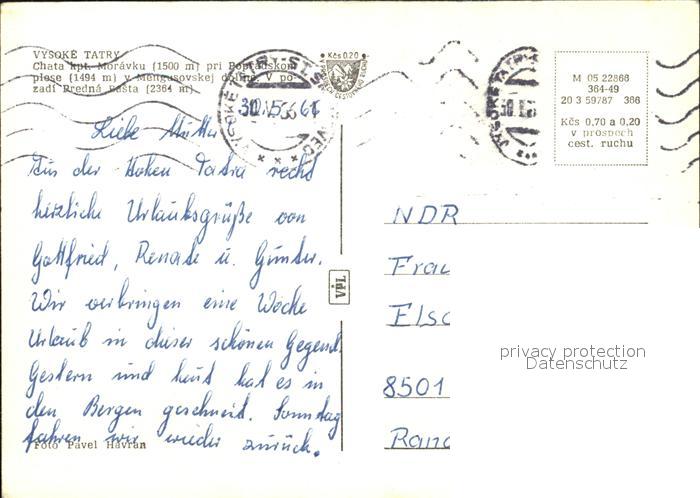 VYSOKÉ TATRY
Chata kpt. Morávku (1500 m) pri Popradskom
plese (1494 m) v Mengusovskej doline. V po-
zadí Predná Bašta (2364 m)
Kčs 0.20
M 05 22866
364-49
20 3 59787 366
Kčs 0,70 a 0,20
v prospech
cest. ruchu
Liebe
Aus der Hohen Tatra recht
herzliche Urlaubsgrüße von
Gottfried, Renate u. Günter.
Wir verbringen eine Woche
Urlaub in dieser schönen Gegend.
Gestern und heut hat es in
den Bergen geschneit. Sonntag
fahren wir wieder zurück.
Foto Pavel Havran
VPL
NDR
Frau
Elsc
8501
Ramc
privacy protection
Datenschutz